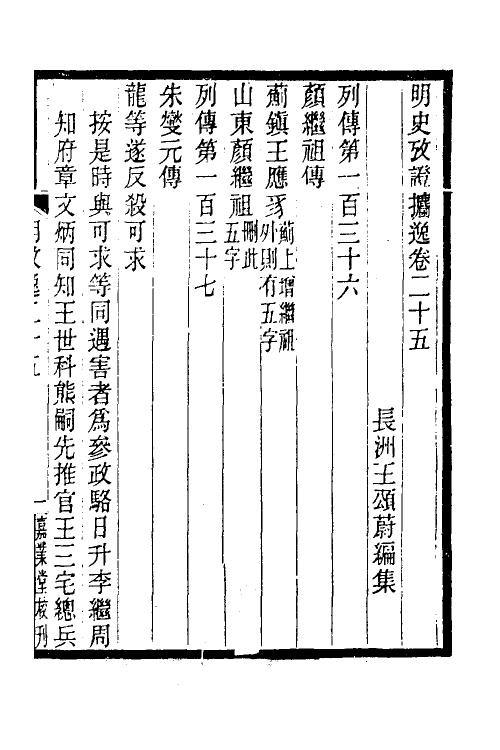 明史攷證攟逸卷二十五
長洲王頌蔚編集
列傳第一百三十六
顏繼祖傳
薊鎮王應豸薊上增繼祖外則有五字
山東顏繼祖刪此五字
列傳第一百三十七
朱燮元傳
龍等遂反殺可求
按是時與可求等同遇害者爲參政駱日升李繼周
知府章文炳同知王世科熊嗣先推官王三宅總兵
一嘉業堂校刊